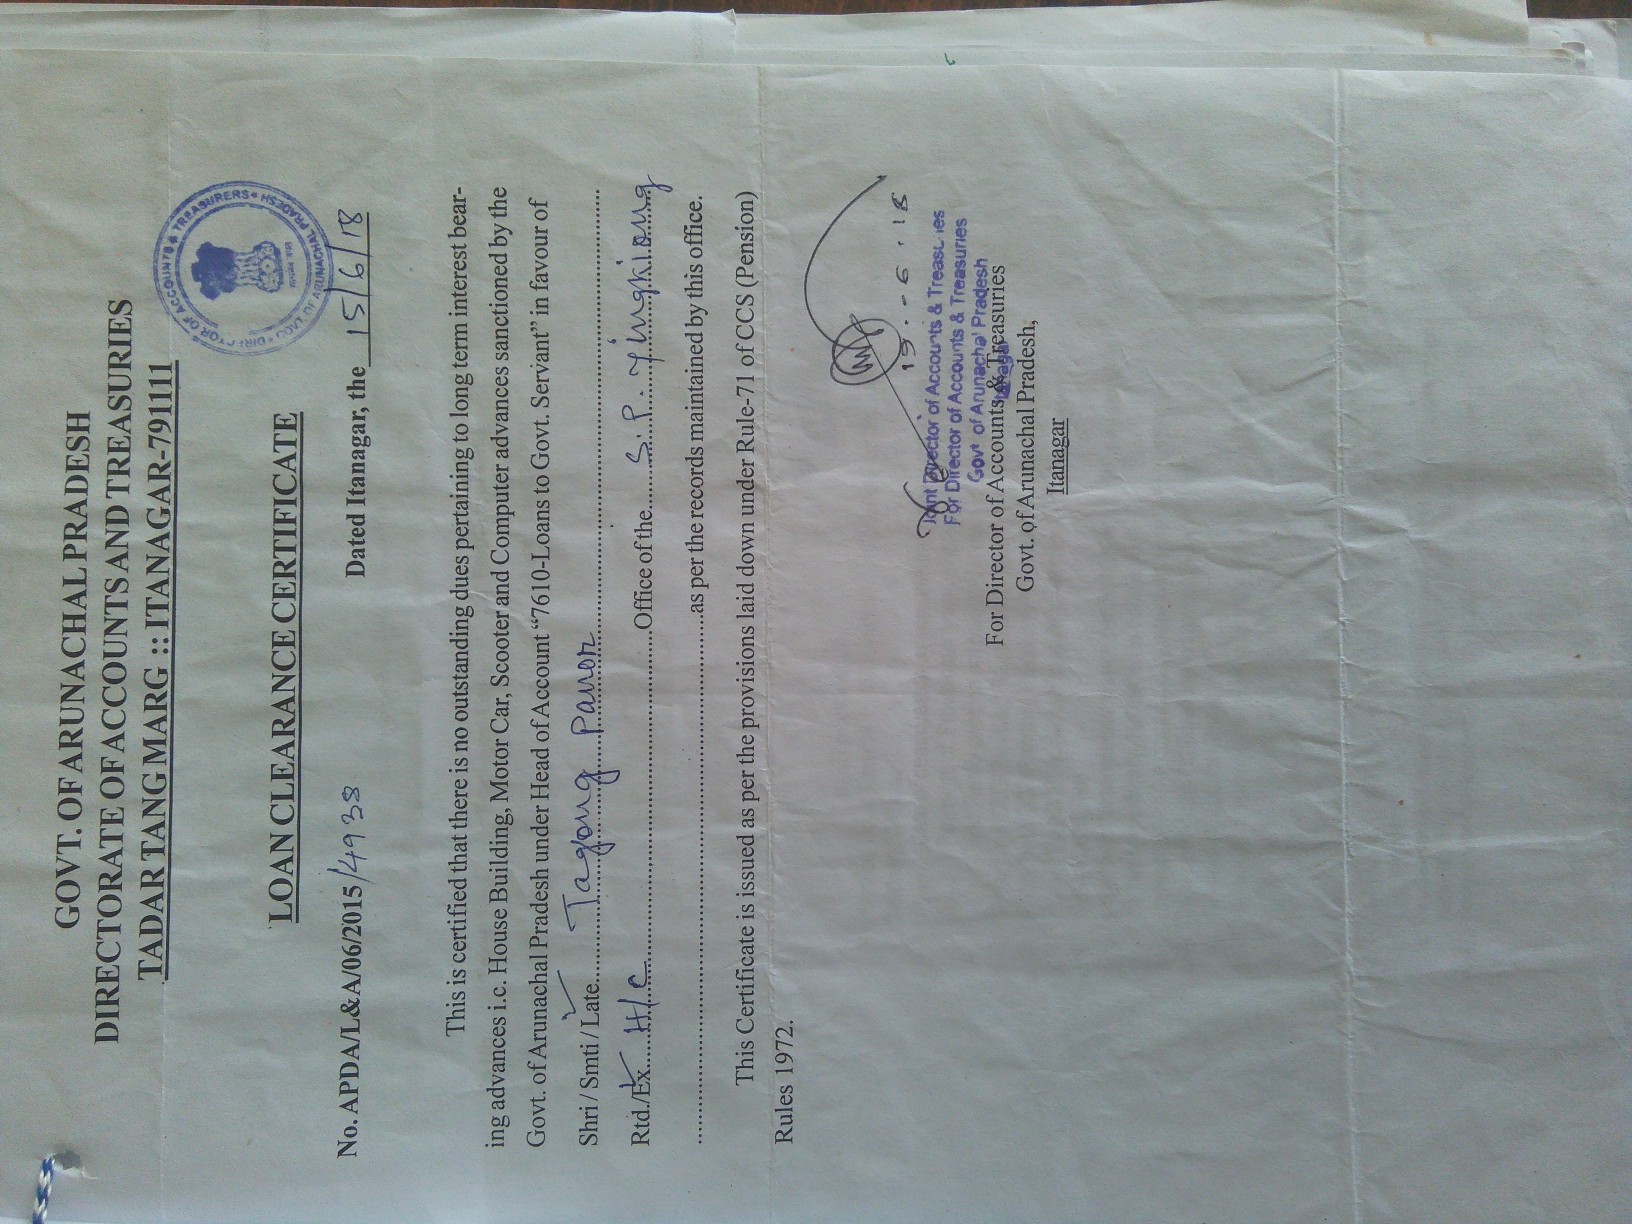 GOVT. OF ARUNACHAL PRADESH
DIRECTORATE OF ACCOUNTS AND TREASURIES
TADAR TANG MARG :: ITANAGAR-791111
DIRECTOR OF ACCOUNTS & TREASURERS * ARUNACHAL PRADESH
LOAN CLEARANCE CERTIFICATE
No. APDA/L&A/06/2015/4938 Dated Itanagar, the 15/6/18
This is certified that there is no outstanding dues pertaining to long term interest bear-
ing advances i.c. House Building, Motor Car, Scooter and Computer advances sanctioned by the
Govt. of Arunachal Pradesh under Head of Account "7610-Loans to Govt. Servant" in favour of
Shri / Smti / Late........Tagong Panor........
Rtd./Ex........H/C........Office of the........S.P. Yingkiong
........as per the records maintained by this office.
This Certificate is issued as per the provisions laid down under Rule-71 of CCS (Pension)
Rules 1972.
Joint Director of Accounts & Treasuries
For Director of Accounts & Treasuries
Govt of Arunachal Pradesh
For Director of Accounts & Treasuries
Govt. of Arunachal Pradesh,
Itanagar